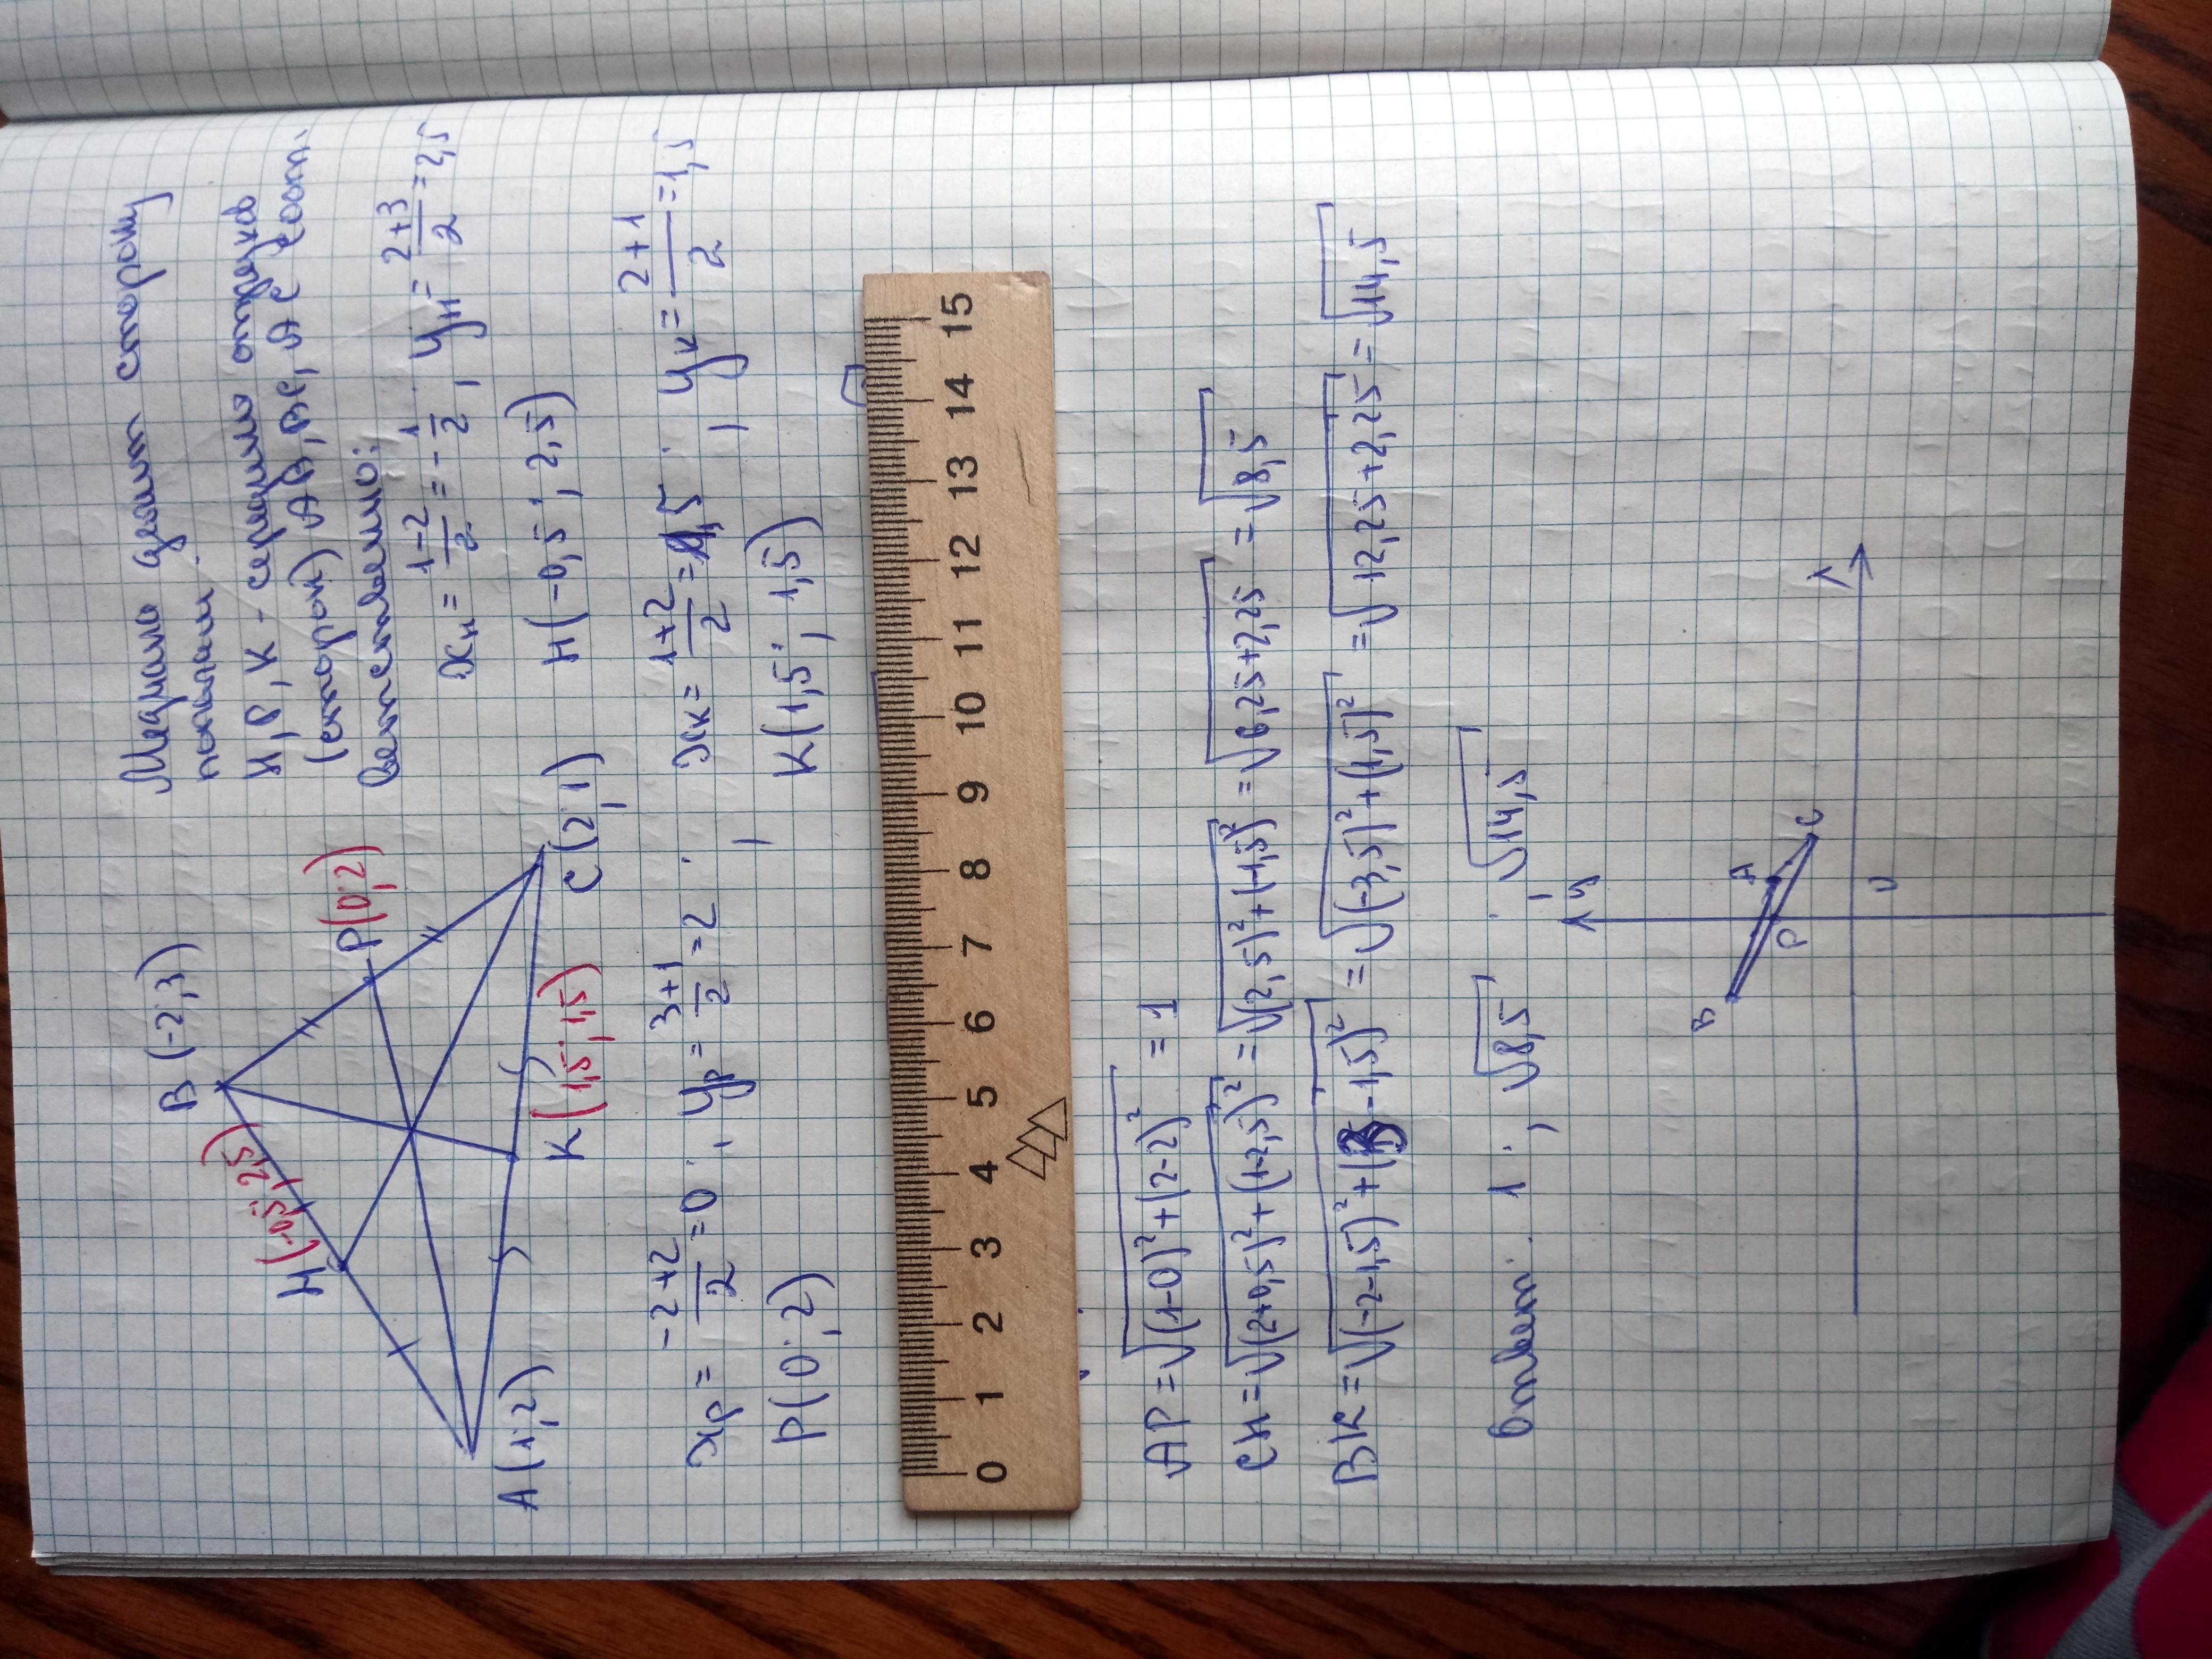 Медиана делит сторону
пополам.
H, P, K - середина отрезков
(сторон) AB, BC, AC соот.
ветственно:
B (-2; 3)
H(-0,5; 2,5)
P(0; 2)
A(1; 2)
K(1,5; 1,5)
C(2; 1)
xн = \frac{1-2}{2} = -\frac{1}{2}; yн = \frac{2+3}{2} = 2,5
H(-0,5; 2,5)
xp = \frac{-2+2}{2} = 0; yp = \frac{3+1}{2} = 2; xк = \frac{1+2}{2} = 1,5; yк = \frac{2+1}{2} = 1,5
P(0; 2)
K(1,5; 1,5)
0 1 2 3 4 5 6 7 8 9 10 11 12 13 14 15
AP = √(1-0)²+(2-2)² = 1
CH = √(2+0,5)²+(1-2,5)² = √(2,5)²+(-1,5)² = √6,25+2,25 = √8,5
BK = √(-2-1,5)²+(3-1,5)² = √(-3,5)²+(1,5)² = √12,25+2,25 = √14,5
Ответ: 1; √8,5; √14,5
y
B
A
P
C
0